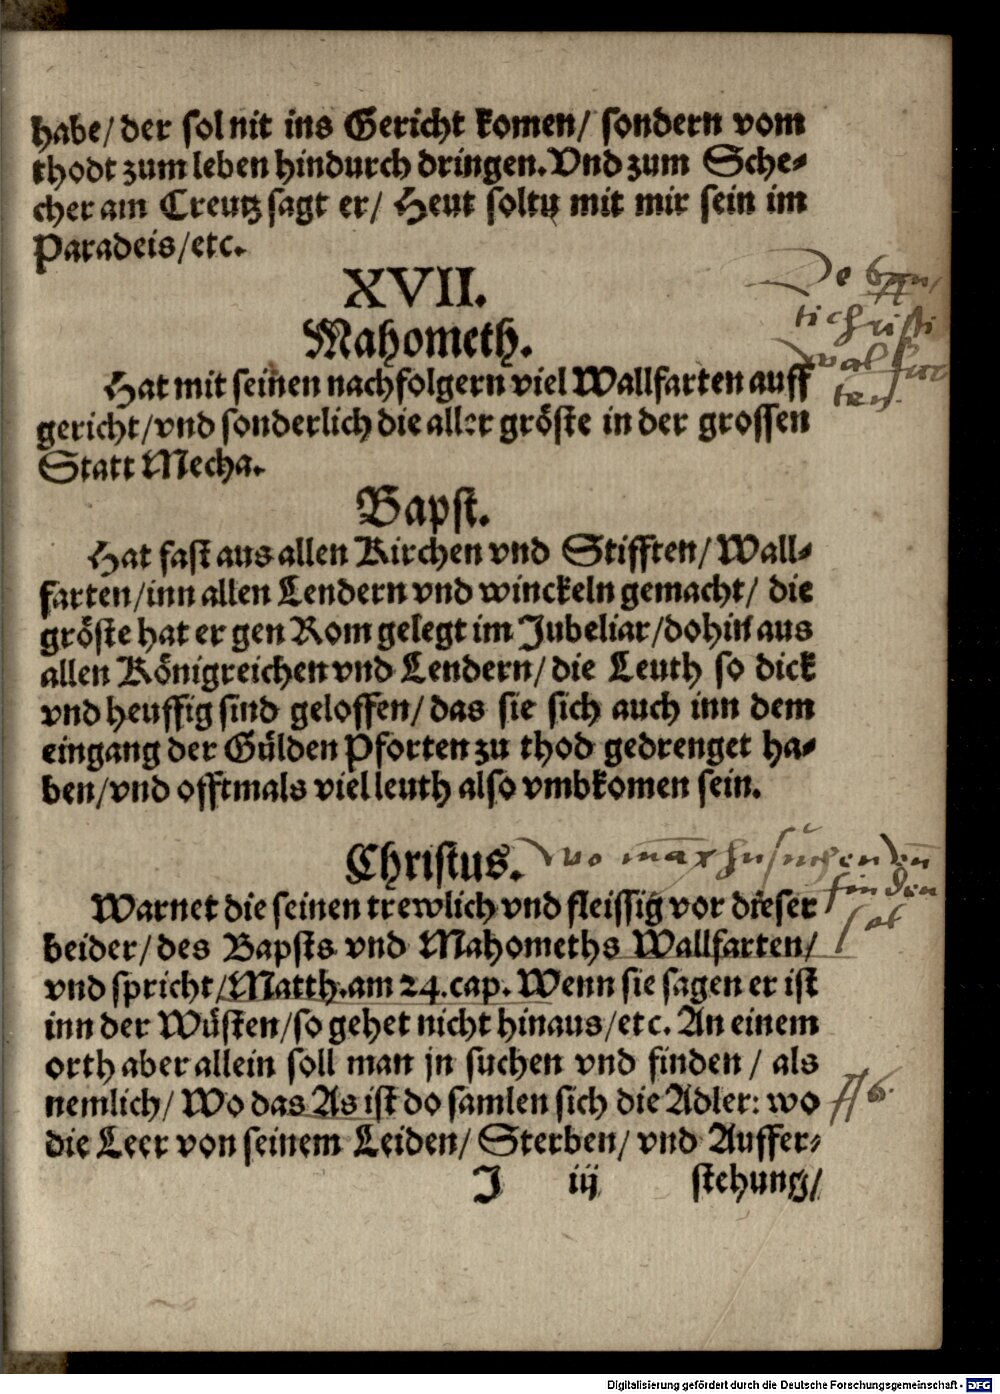 habe/ der sol nit ins Gericht komen/ sondern vom
thodt zum leben hindurch dringen. Vnd zum Sche⸗
cher am Creutz sagt er/ Heut soltu mit mir sein im
Paradeis/etc.
XVII.
Mahometh.
Hat mit seinen nachfolgern viel Wallfarten auff
gericht/vnd sonderlich die aller gröste in der grossen
Statt Mecha.
Bapst.
Hat fast aus allen Kirchen vnd Stifften/ Wall⸗
farten/inn allen Lendern vnd winckeln gemacht/ die
gröste hat er gen Rom gelegt im Jubeliar/dohin aus
allen Königreichen vnd Lendern/ die Leuth so dick
vnd heuffig sind geloffen/ das sie sich auch inn dem
eingang der Gülden Pforten zu thod gedrenget ha⸗
ben/vnd offtmals viel leuth also vmbkomen sein.
Christus.
wo man suchen
finden
sol
Warnet die seinen trewlich vnd fleissig vor dieser
beider/ des Bapsts vnd Mahomeths Wallfarten/
vnd spricht/Matth.am 24.cap. Wenn sie sagen er ist
inn der Wüsten/so gehet nicht hinaus/etc. An einem
orth aber allein soll man jn suchen vnd finden / als
nemlich/ Wo das As ist do samlen sich die Adler: wo
die Leer von seinem Leiden/ Sterben/ vnd Auffer⸗
J iij stehung/
De
tichristi
walfar
ten.
Digitalisierung gefördert durch die Deutsche Forschungsgemeinschaft - DFG